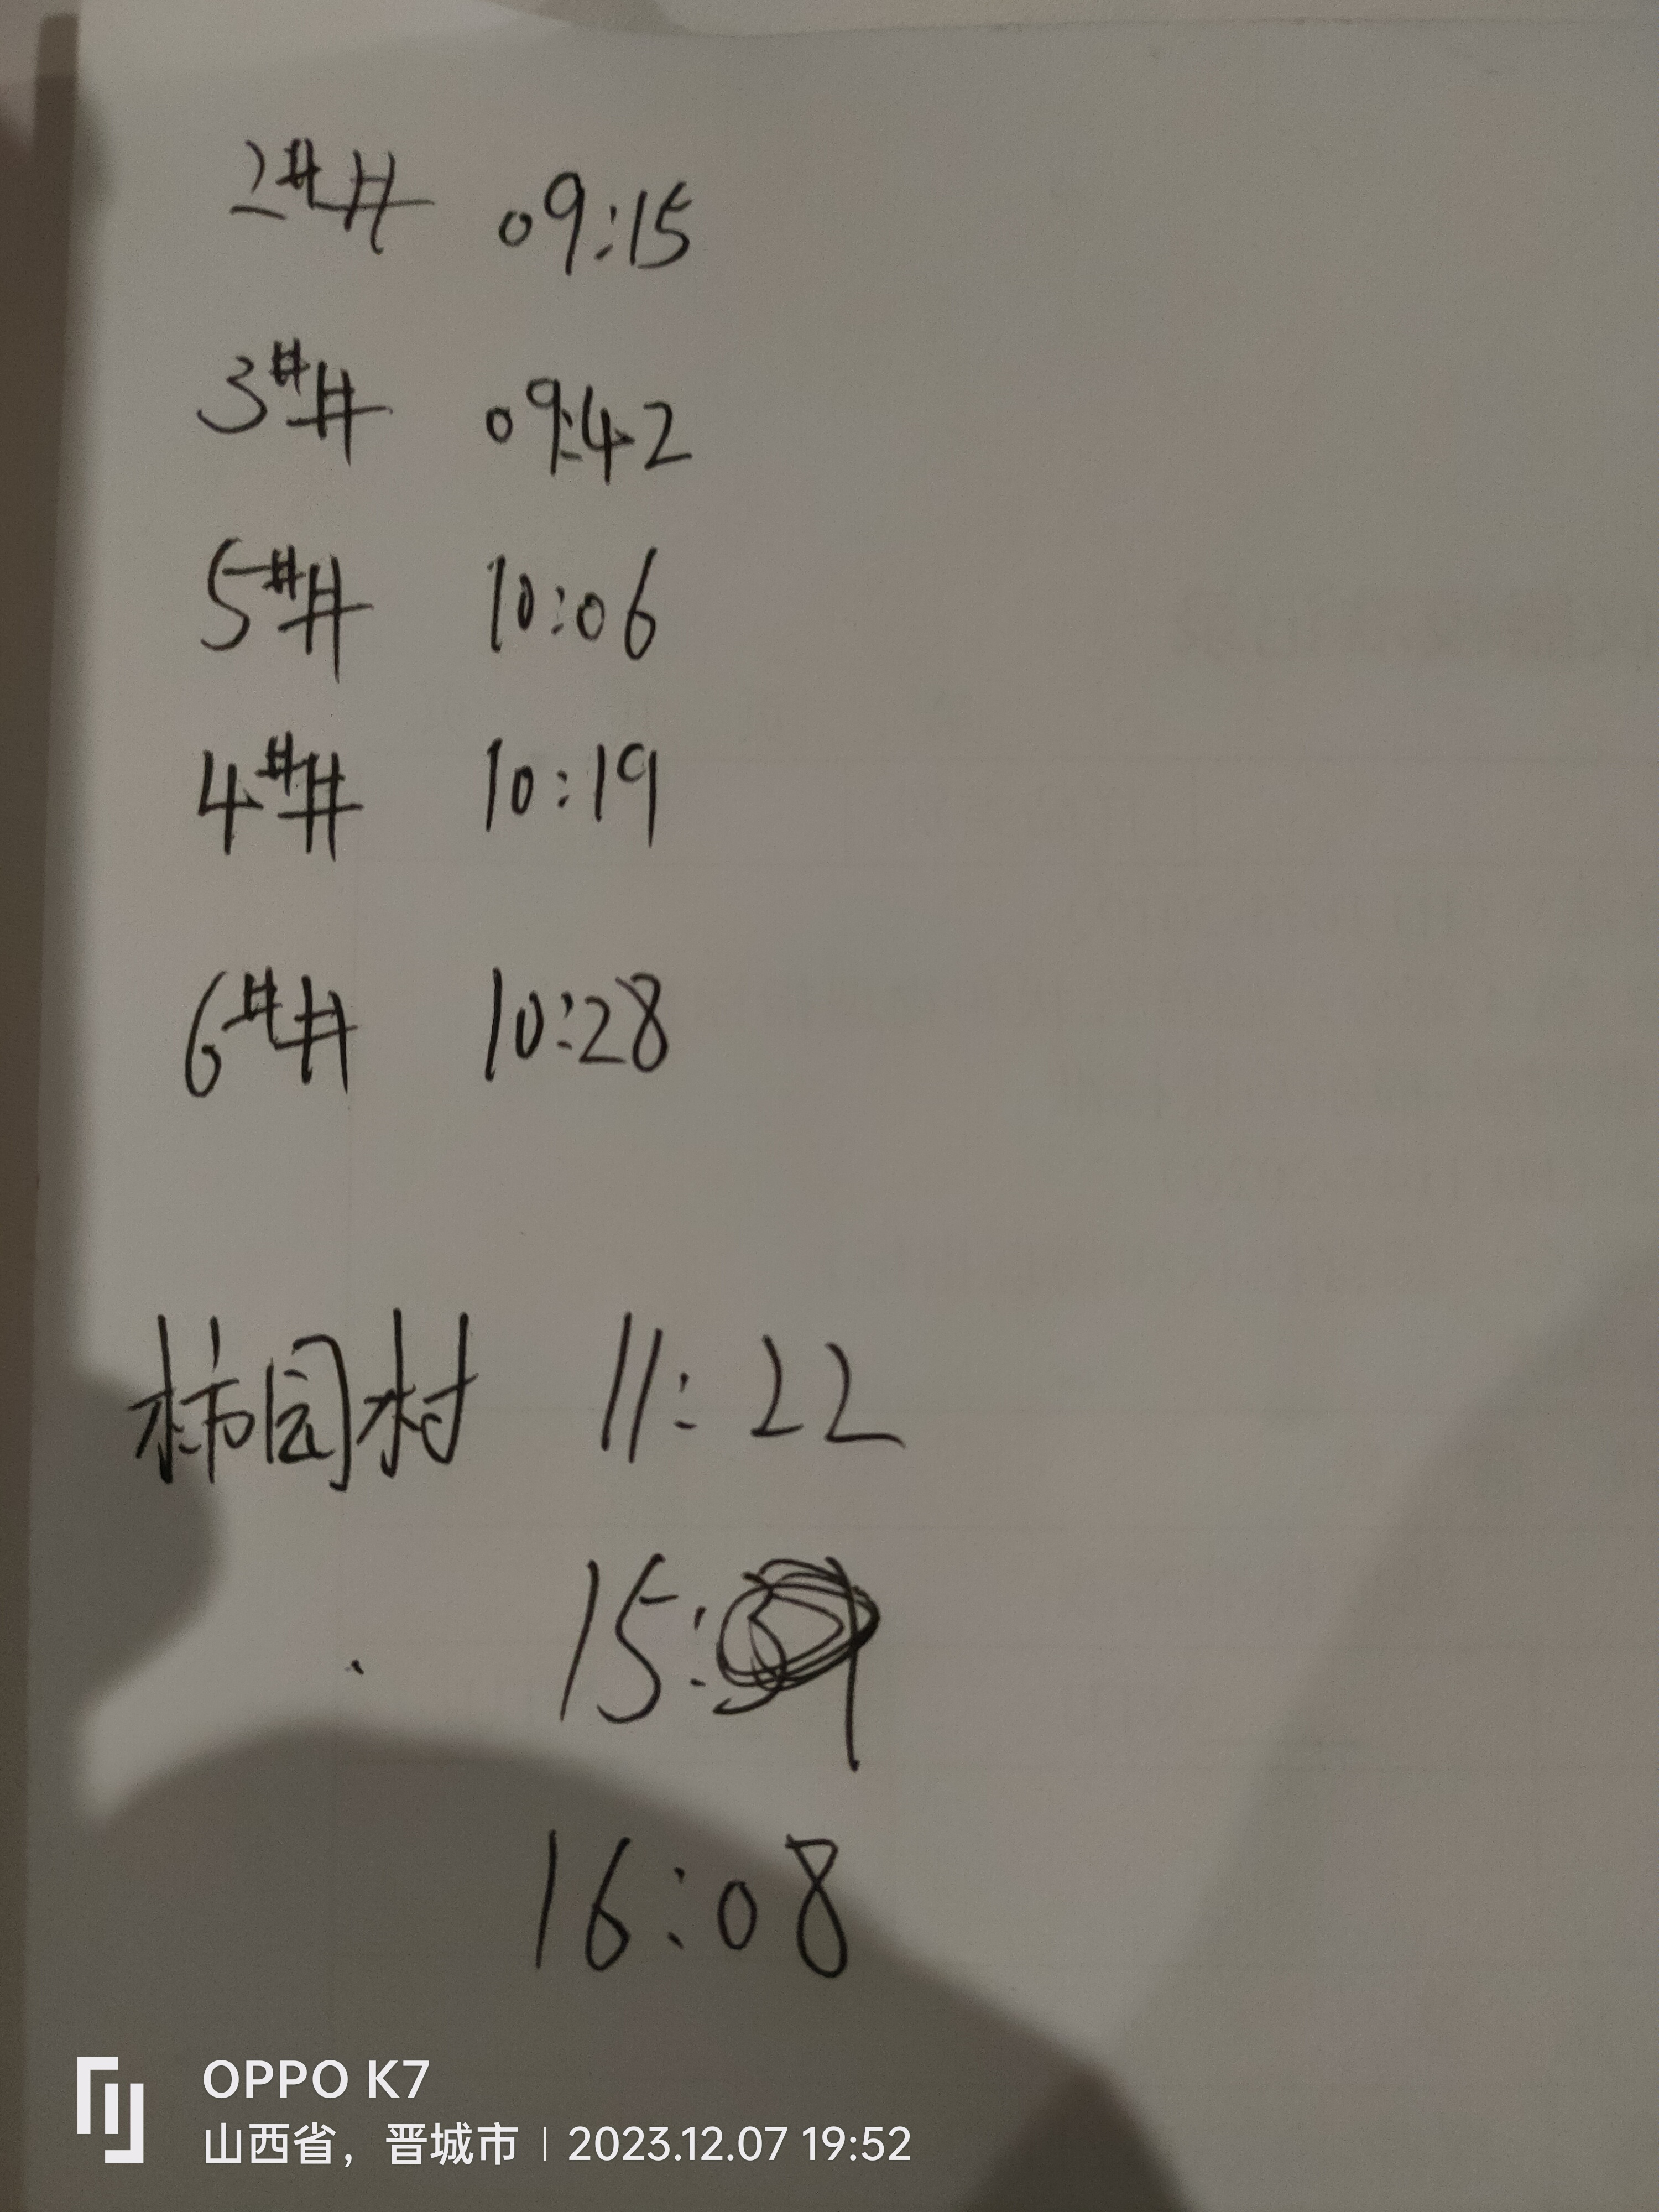 2#井 09:15
3#井 09:42
5#井 10:06
4#井 10:19
6#井 10:28
柿园村 11:22
15:
16:08
OPPO K7
山西省，晋城市 | 2023.12.07 19:52